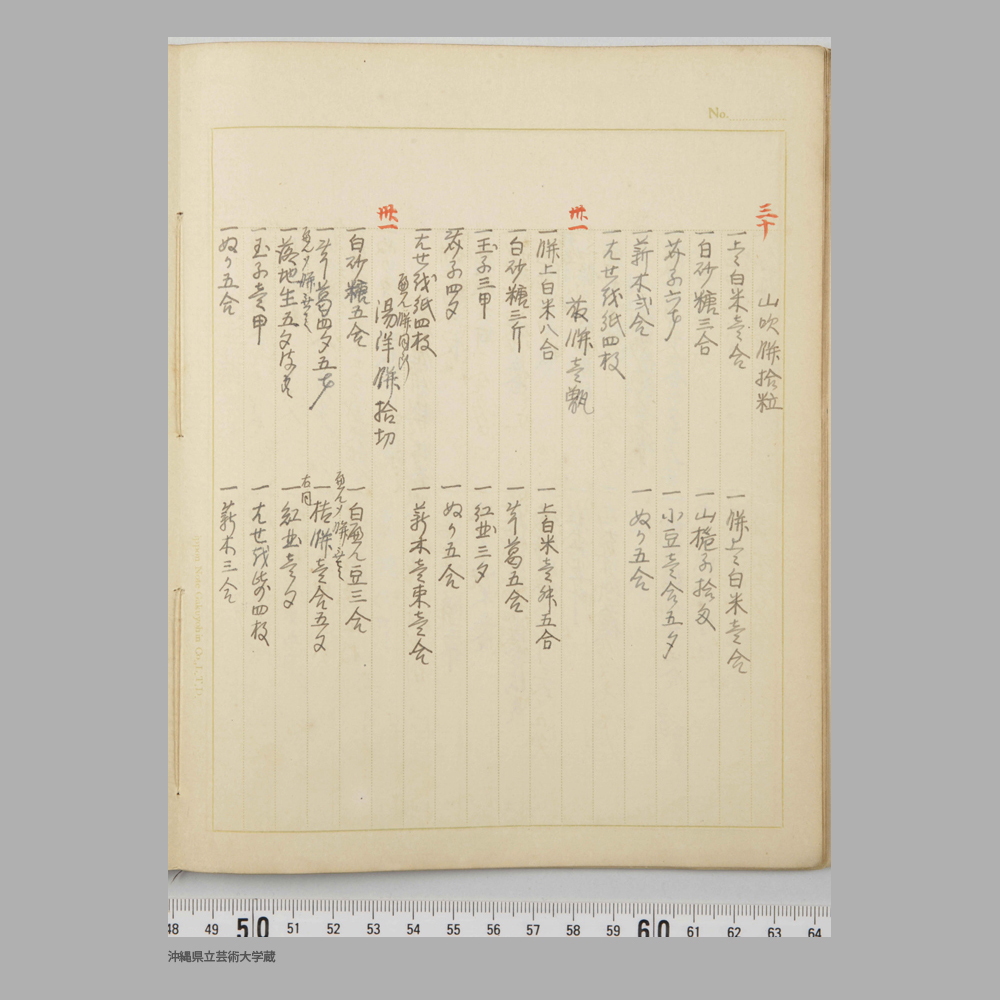 No.
三十
山吹餅拾粒
一上々白米壱合
一餅上々白米壱合
一白砂糖三合
一山梔子拾匁
一芥子六才
一小豆壱合五夕
一薪木弍合
一ぬり五合
一九せ伐紙四枚
卅一
飯餅壱甑
一餅上白米八合
一上白米壱升五合
一白砂糖三斤
一芋葛五合
一玉子三甲
一紅花三夕
一芥子四夕
一ぬり五合
一九せ伐紙四枚
一薪木壱束壱合
卅一
湯洋餅拾切
一白砂糖五合
一白豆三合
一芋葛四夕五才
一桔餅壱合五匁
右同
一落地生五匁
一紅花壱匁
一玉子壱甲
一ぬり五合
一薪木三合
48 49 50 51 52 53 54 55 56 57 58 59 60 61 62 63 64
沖縄県立芸術大学蔵